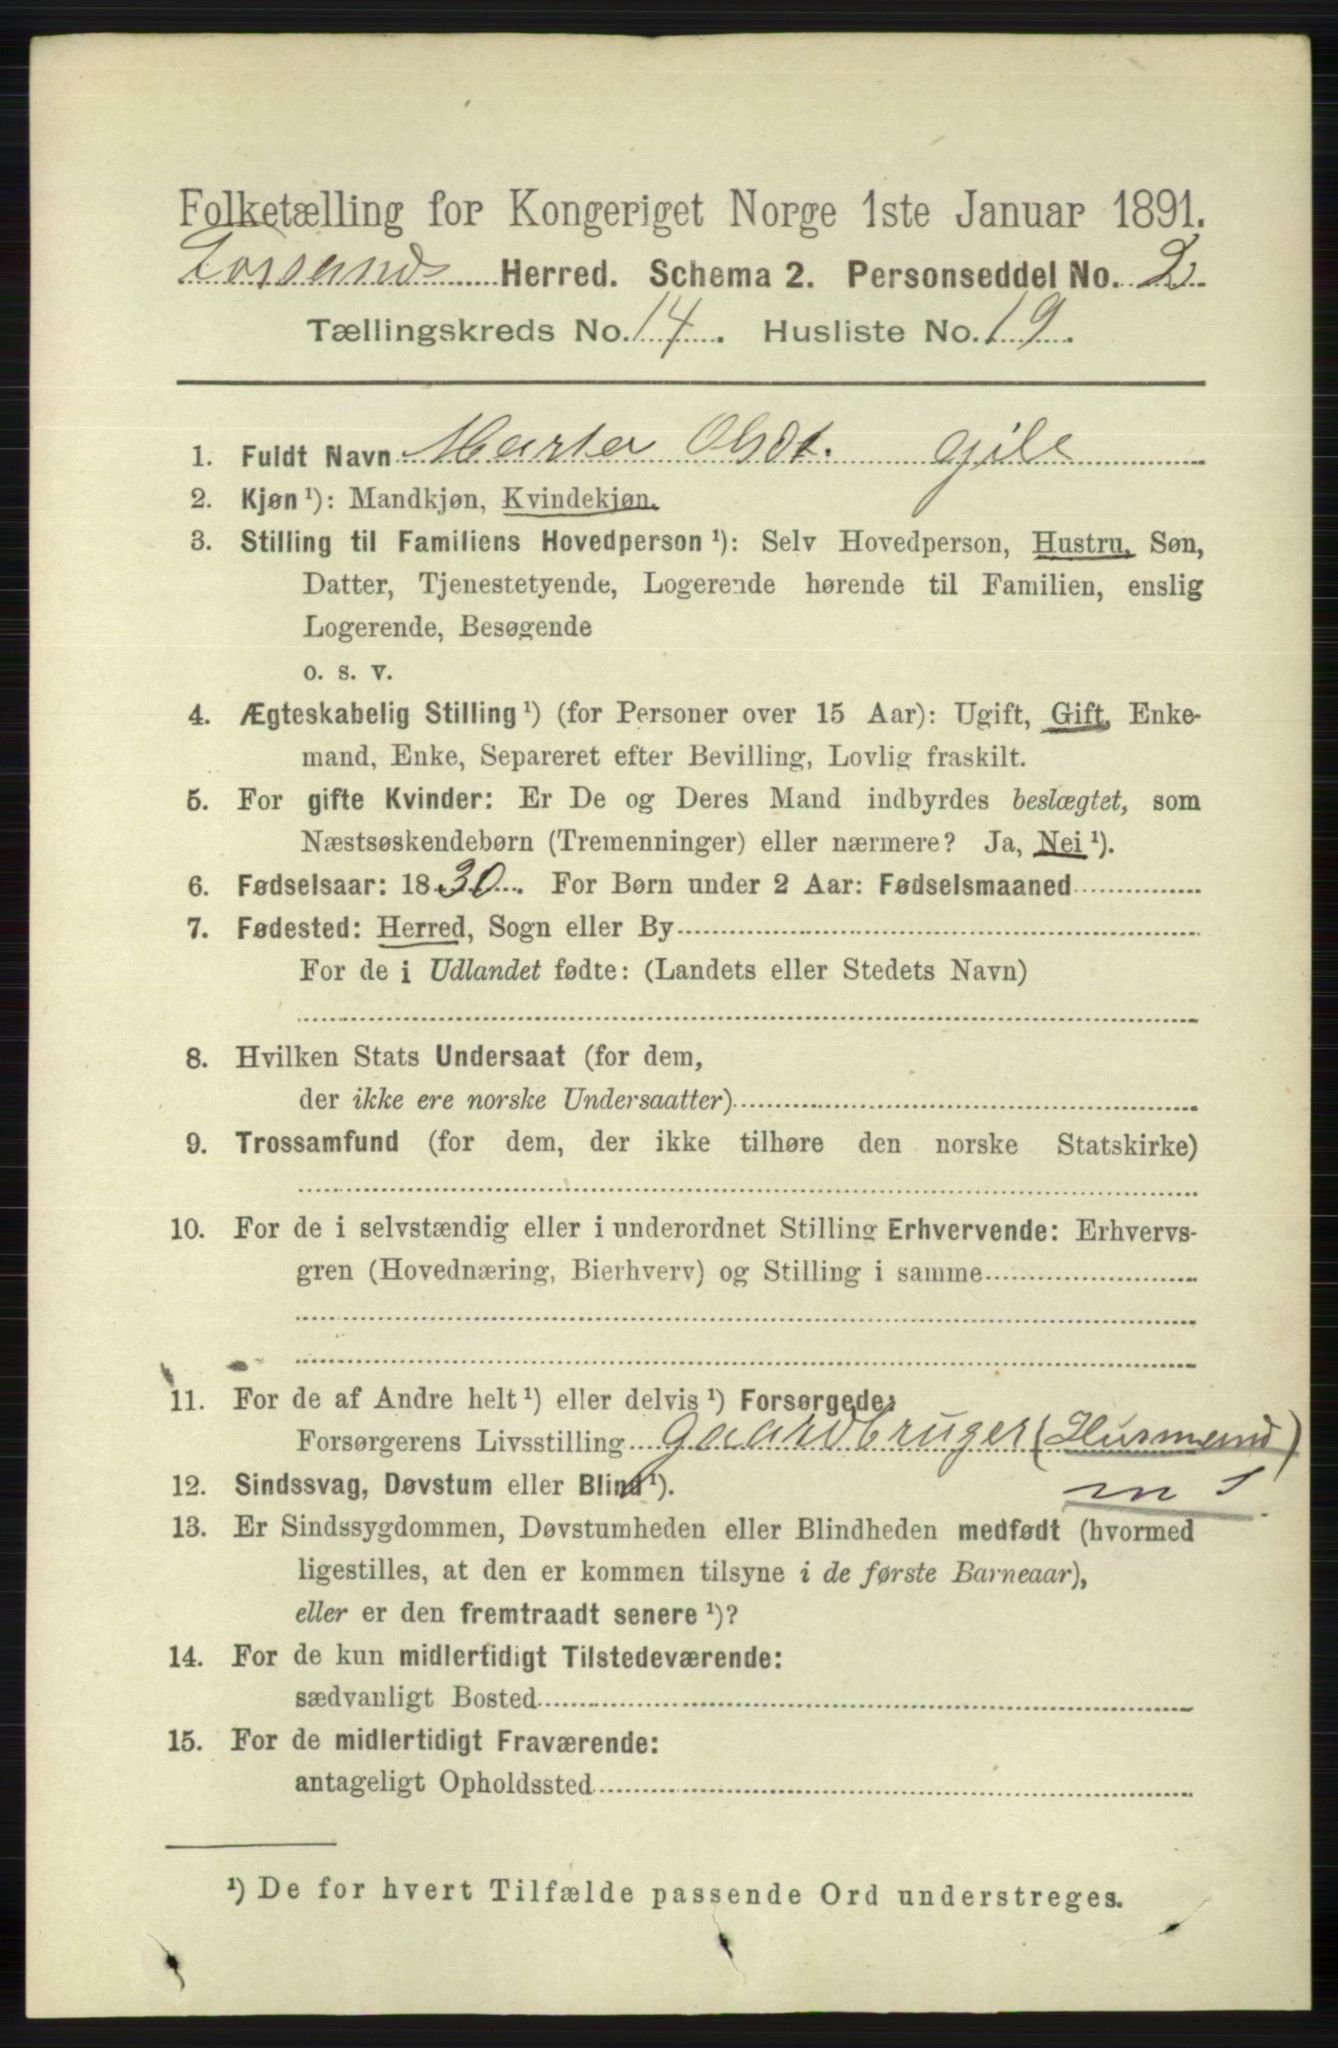 Folketælling for Kongeriget Norge 1ste Januar 1891.
Fossands Herred. Schema 2. Personseddel No. 2
Tællingskreds No. 14. Husliste No. 19.
1. Fuldt Navn Marta Olsdt. Gile
2. Kjøn ¹): Mandkjøn, Kvindekjøn.
3. Stilling til Familiens Hovedperson ¹): Selv Hovedperson, Hustru, Søn,
Datter, Tjenestetyende, Logerende hørende til Familien, enslig
Logerende, Besøgende
o. s. v.
4. Ægteskabelig Stilling ¹) (for Personer over 15 Aar): Ugift, Gift, Enke-
mand, Enke, Separeret efter Bevilling, Lovlig fraskilt.
5. For gifte Kvinder: Er De og Deres Mand indbyrdes beslægtet, som
Næstsøskendebørn (Tremenninger) eller nærmere? Ja, Nei ¹).
6. Fødselsaar: 1830. For Børn under 2 Aar: Fødselsmaaned
7. Fødested: Herred, Sogn eller By
For de i Udlandet fødte: (Landets eller Stedets Navn)
8. Hvilken Stats Undersaat (for dem,
der ikke ere norske Undersaatter)
9. Trossamfund (for dem, der ikke tilhøre den norske Statskirke)
10. For de i selvstændig eller i underordnet Stilling Erhvervende: Erhvervs-
gren (Hovednæring, Bierhverv) og Stilling i samme
11. For de af Andre helt ¹) eller delvis ¹) Forsørgede:
Forsørgerens Livsstilling Gaardbruger (Husmand)
12. Sindssvag, Døvstum eller Blind ¹). m J
13. Er Sindssygdommen, Døvstumheden eller Blindheden medfødt (hvormed
ligestilles, at den er kommen tilsyne i de første Barneaar),
eller er den fremtraadt senere ¹)?
14. For de kun midlertidigt Tilstedeværende:
sædvanligt Bosted
15. For de midlertidigt Fraværende:
antageligt Opholdssted
¹) De for hvert Tilfælde passende Ord understreges.